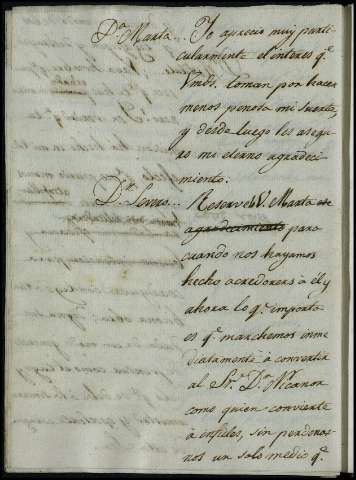 D.ª Marta... Yo aprecio muy parti
cularmente el interes q.e
Vmds. toman por hacer
menos penosa mi suerte,
y desde luego les asegu
ro mi eterno agradeci
miento:
D.n Severo... Reserve V. Marta ese
agradecimiento para
cuando nos hayamos
hecho acredores á él, y
ahora lo q.e importa
es q.e marchemos inme
diatamente á convertir
al S.r D.n Nicanor
como quien convierte
á infieles, sin perdonar
nos un solo medio q.e